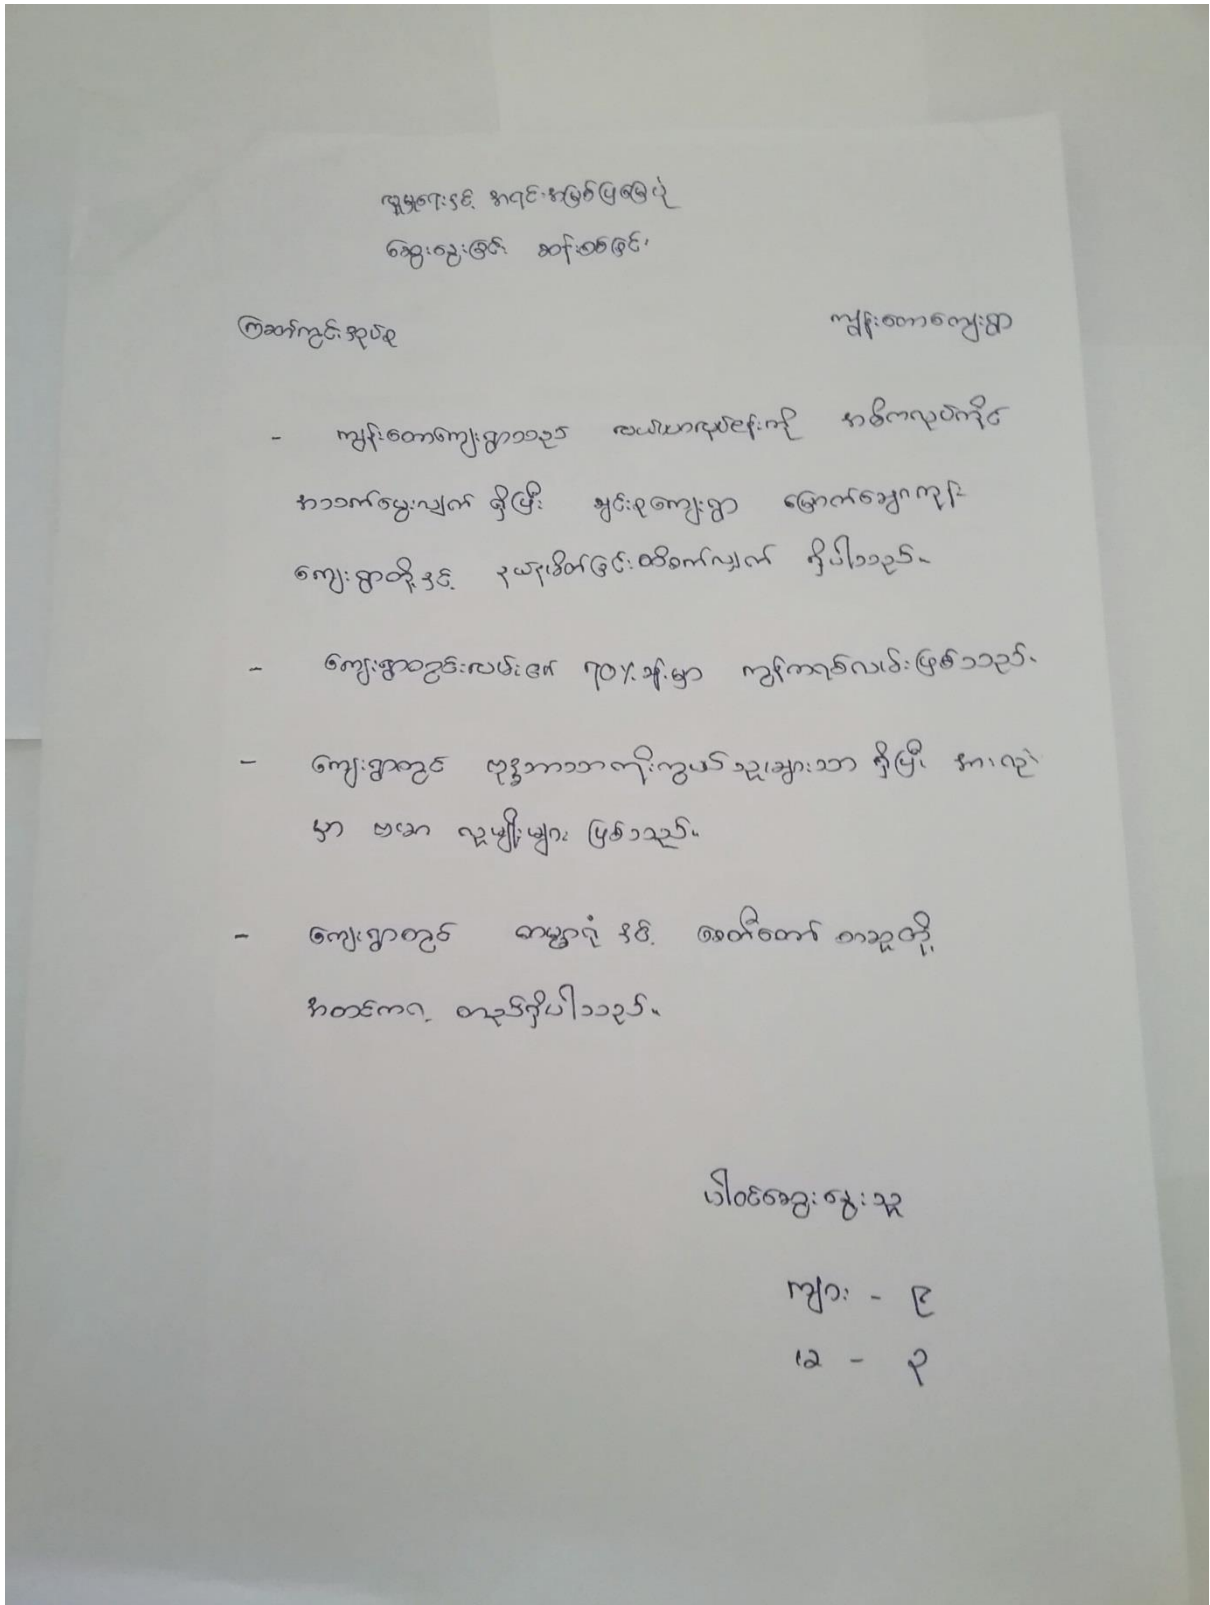 လူမှုရေးနှင့် အရင်းအမြစ်ပြမြေပုံ
ဆွေးနွေးခြင်း ဆန်းစစ်ခြင်း
ကြဆတ်ကွင်းအုပ်စု
ကျွန်းတောကျေးရွာ
- ကျွန်းတောကျေးရွာသည် လယ်ယာလုပ်ငန်းကို အဓိကလုပ်ကိုင်
အသက်မွေးလျက် ရှိပြီး ချင်းစုကျေးရွာ မြောက်ချောကုန်း
ကျေးရွာတို့နှင့် နယ်နမိတ်ခြင်းထိစက်လျှက် ရှိပါသည်။
- ကျေးရွာတွင်းလမ်း၏ ၇၀% ခန့်မှာ ကွန်ကရစ်လမ်းဖြစ်သည်။
- ကျေးရွာတွင် ဗုဒ္ဓဘာသာကိုးကွယ်သူများသာ ရှိပြီး အားလုံး
မှာ ဗမာ လူမျိုးများ ဖြစ်သည်။
- ကျေးရွာတွင် ဓမ္မာရုံ နှင့် စေတီတော် တဆူတို့
အတင်ကရ တည်ရှိပါသည်။
ပါဝင်ဆွေးနွေးသူ
ကျား - ၉
မ - ၃